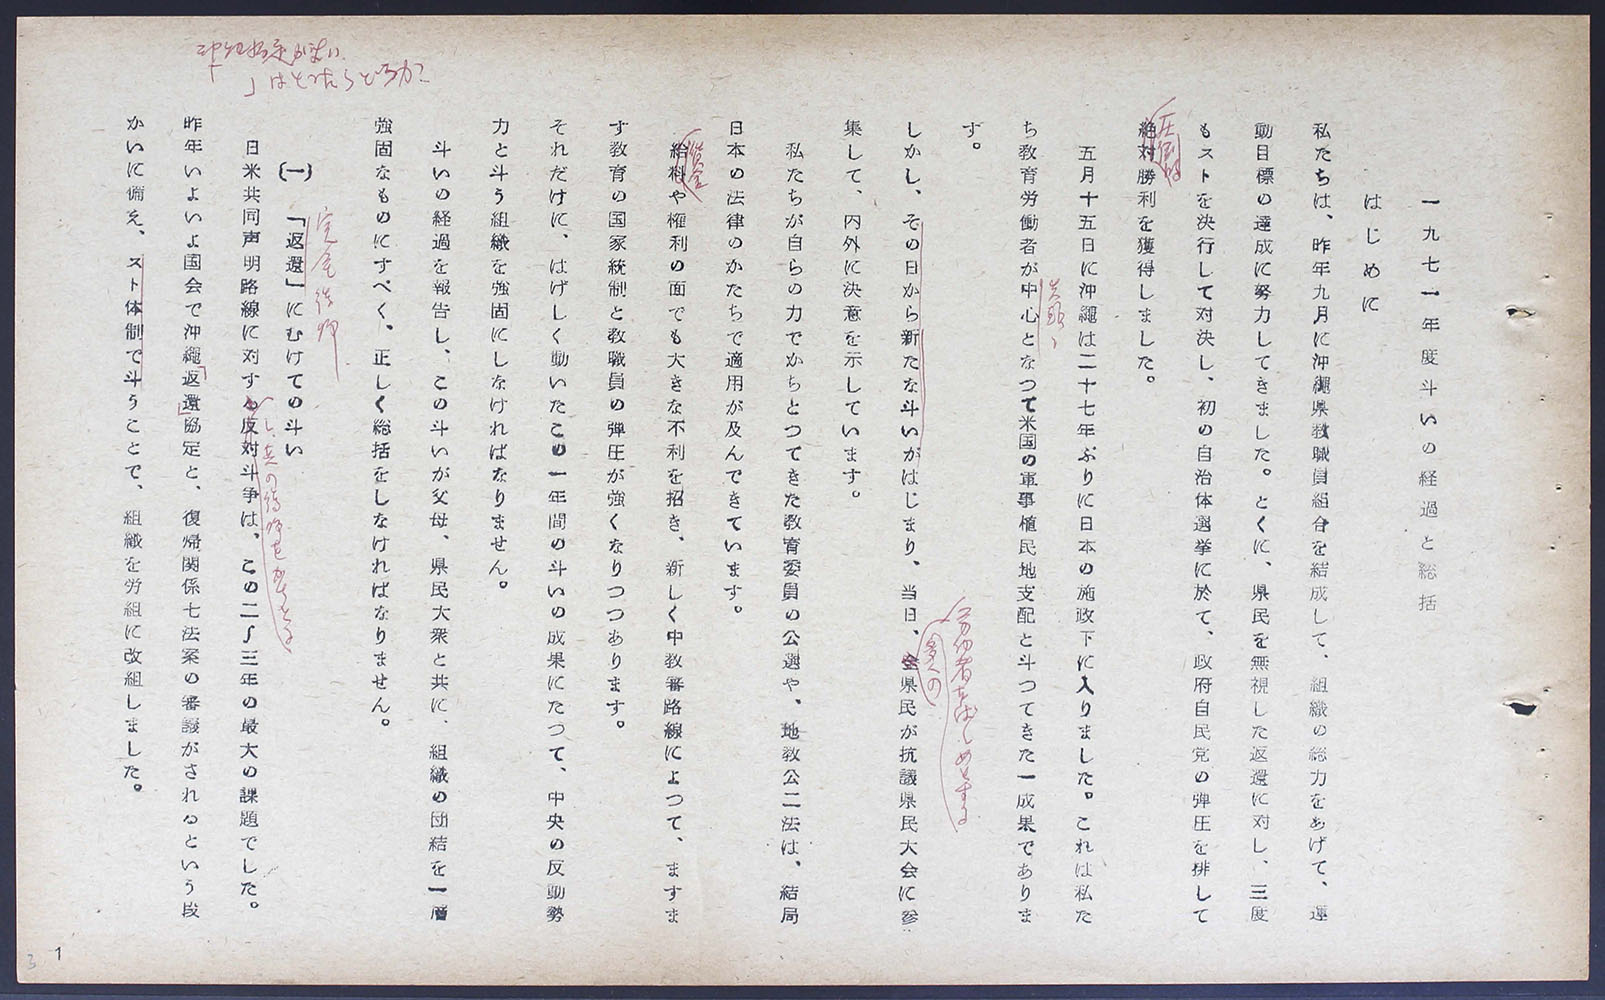 一九七一年度斗いの経過と総括
はじめに
私たちは、昨年九月に沖縄県教職員組合を結成して、組織の総力をあげて、運
動目標の達成に努力してきました。とくに、県民を無視した返還に対し、三度
もストを決行して対決し、初の自治体選挙に於て、政府自民党の弾圧を排して
圧倒的
絶対勝利を獲得しました。
五月十五日に沖縄は二十七年ぶりに日本の施政下に入りました。これは私た
ち教育労働者が中心となつて米国の軍事植民地支配と斗つてきた一成果でありま
す。
労働者をはじめとする
多くの
しかし、その日から新たな斗いがはじまり、当日、全県民が抗議県民大会に参
集して、内外に決意を示しています。
私たちが自らの力でかちとつてきた教育委員の公選や、地教公二法は、結局
日本の法律のかたちで適用が及んできています。
賃金
給料や権利の面でも大きな不利を招き、新しく中教審路線によつて、ますま
す教育の国家統制と教職員の弾圧が強くなりつつあります。
それだけに、はげしく動いたこの一年間の斗いの成果にたつて、中央の反動勢
力と斗う組織を強固にしなければなりません。
斗いの経過を報告し、この斗いが父母、県民大衆と共に、組織の団結を一層
強固なものにすべく、正しく総括をしなければなりません。
(一)　「返還」にむけての斗い
日米共同声明路線に対する反対斗争は、この二〜三年の最大の課題でした。
昨年いよいよ国会で沖縄「返還」協定と、復帰関係七法案の審議がされるという段
かいに備え、スト体制で斗うことで、組織を労組に改組しました。
1
3